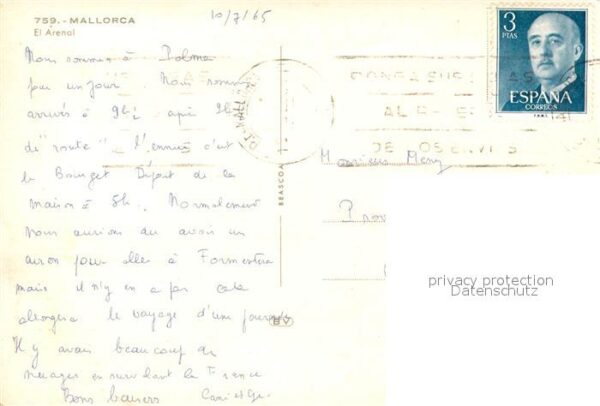 759. - MALLORCA
El Arenal
10/7/65
Nous sommes à Palma
pour un jour. Nous sommes
arrivés à 9h½ après 2h
de "route". l'ennui c'est
le Bourget Départ de la
maison à 5h. Normalement
nous aurions du avoir un
avion pour aller à Formentera
mais il n'y en a pas cela
allongera le voyage d'une journée
Il y avait beaucoup de
nuages en survolant la France
Bons baisers
3
PTAS
ESPAÑA
CORREOS
BEASCOA
BV
Monsieur
Prov
privacy protection
Datenschutz